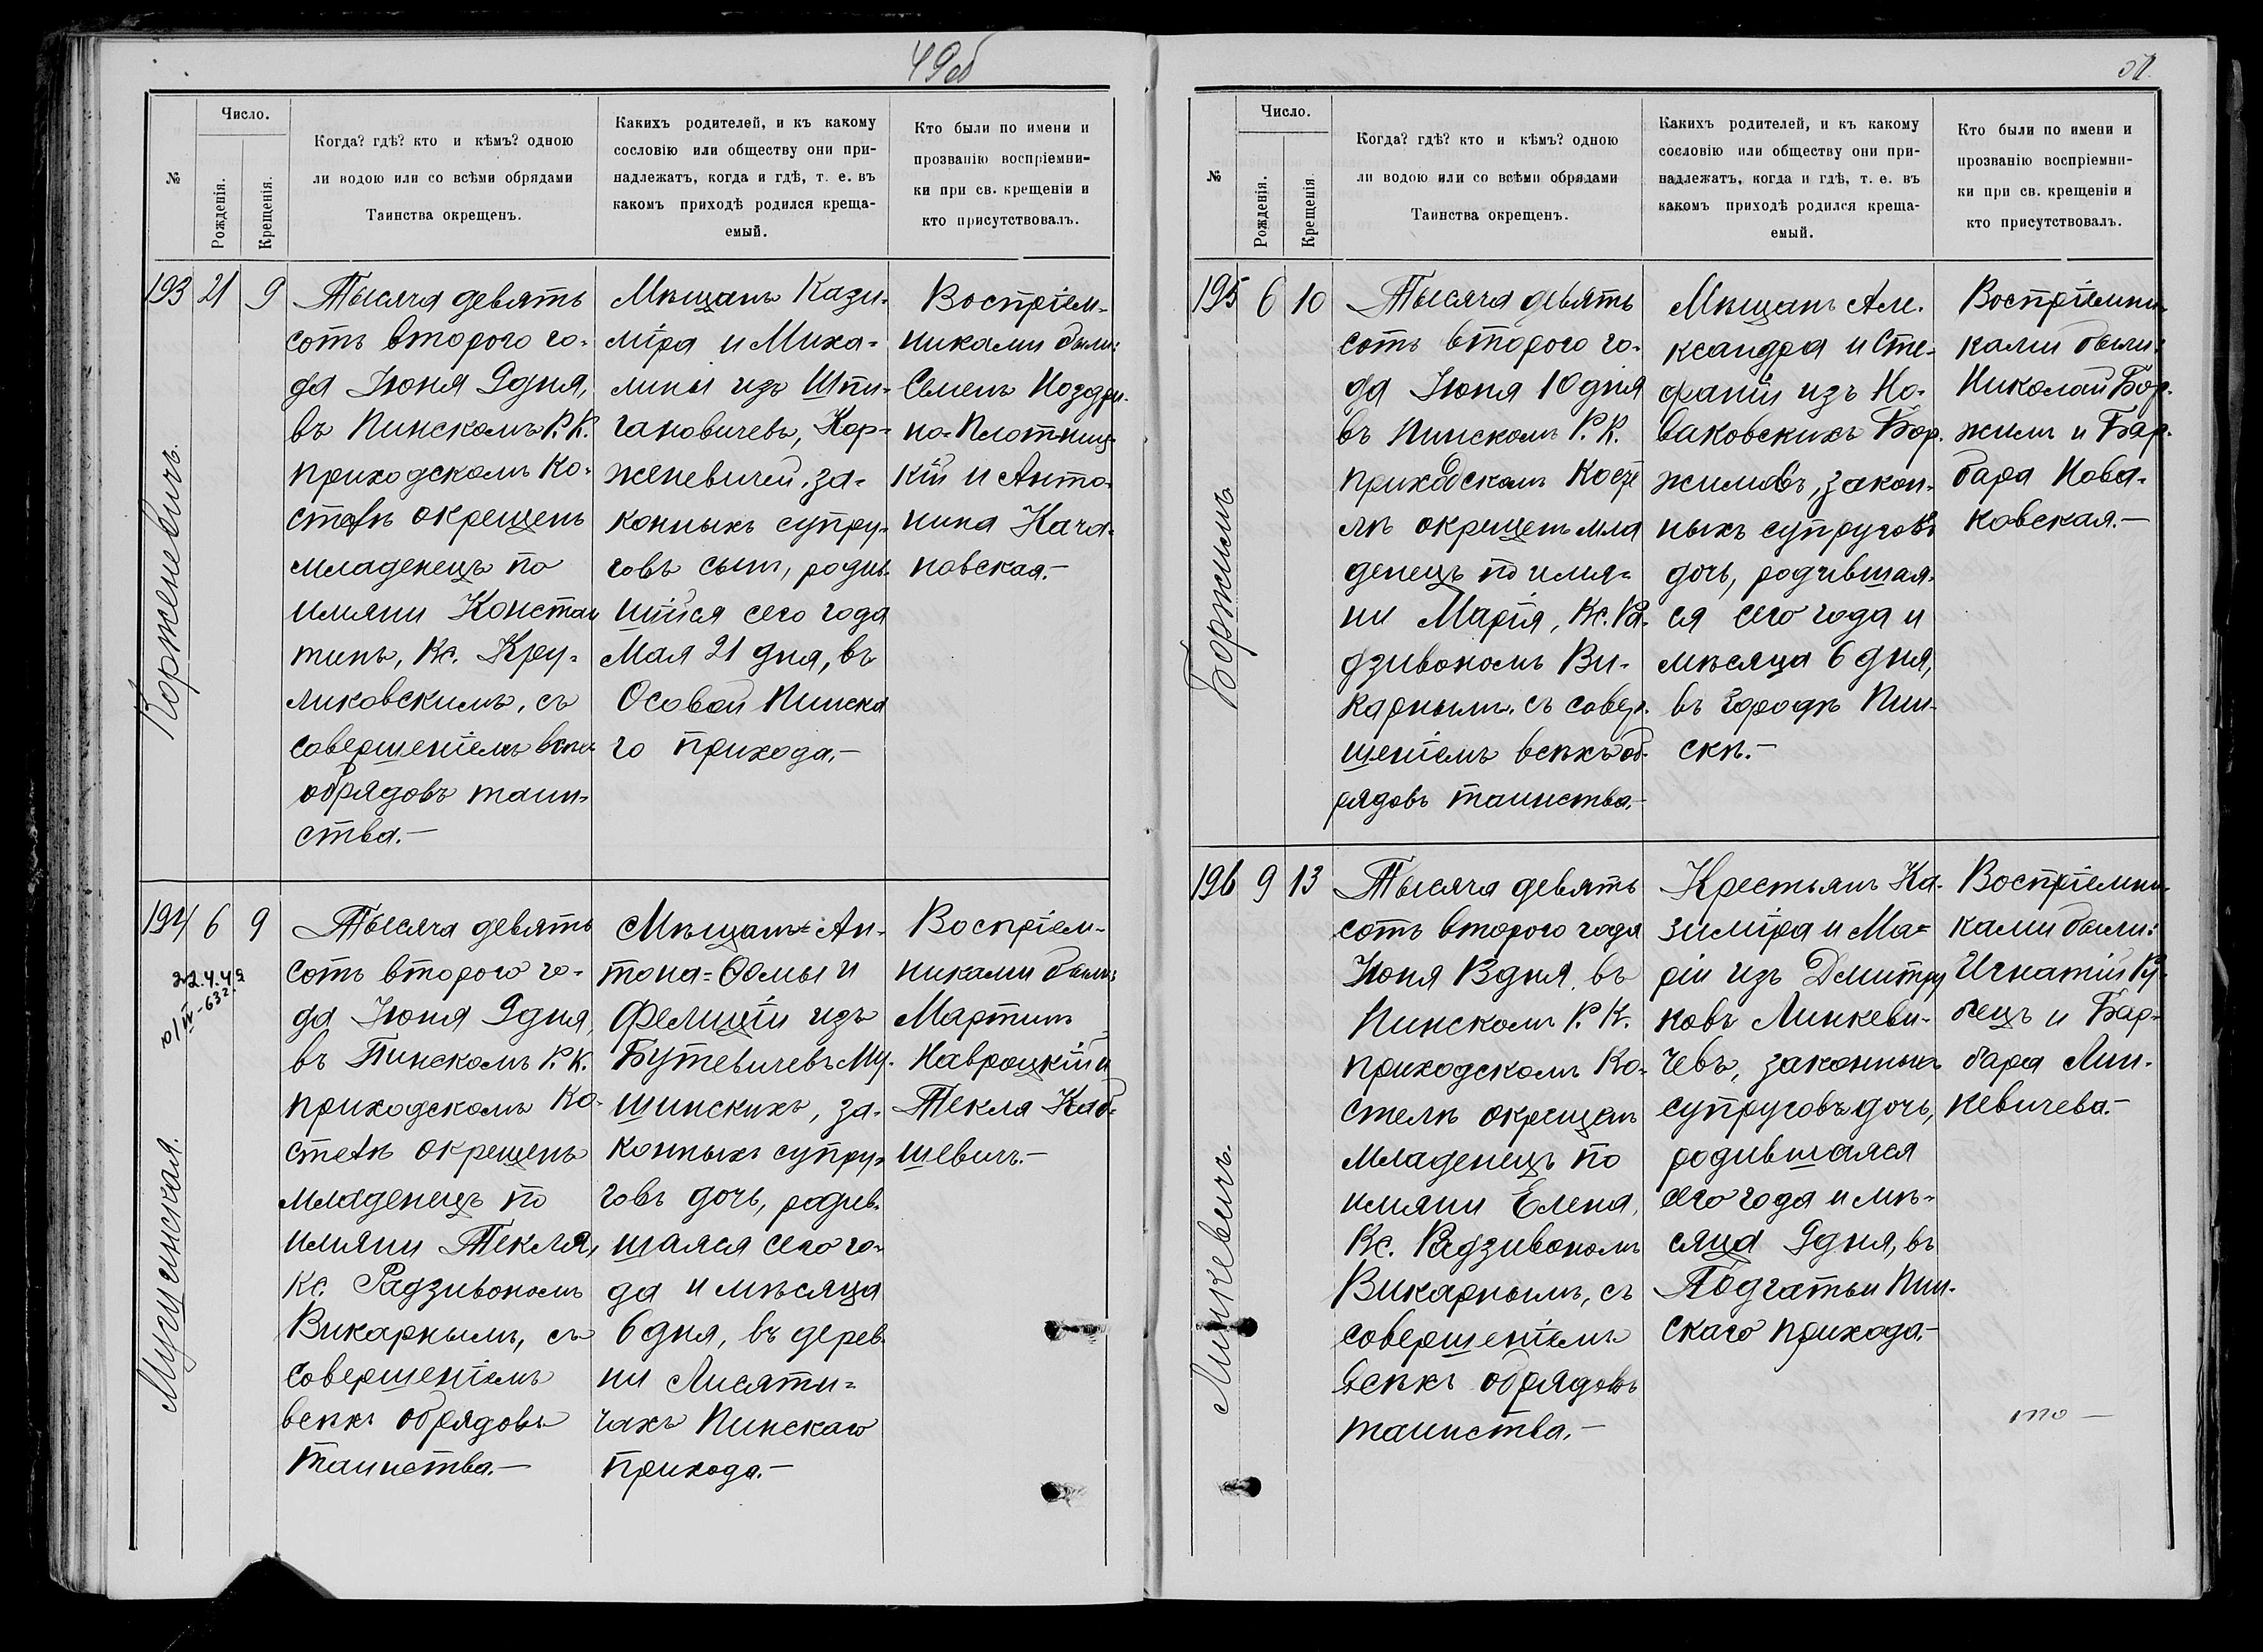 49об
№
Число.
Рожденія.
Крещенія.
Когда? гдѣ? кто и кѣмъ? одною
ли водою или со всѣми обрядами
Таинства окрещенъ.
Какихъ родителей, и къ какому
сословію или обществу они при-
надлежатъ, когда и гдѣ, т. е. въ
какомъ приходѣ родился креща-
емый.
Кто были по имени и
прозванію воспріемни-
ки при св. крещеніи и
кто присутствовалъ.
193 21 9
Корженевичъ.
Тысяча девять
сотъ второго го-
да Іюня 9 дня,
въ Пинскомъ Р. К.
приходскомъ Ко-
стелѣ окрещенъ
младенецъ по
имяни Констан
тинъ, Кс. Кру-
ликовскимъ, съ
совершеніемъ всѣхъ
обрядовъ таин-
ства.—
Мѣщанъ Кази-
міра и Миха-
лины изъ Шпи-
гановичевъ, Кор-
женевичей, за-
конныхъ супру-
говъ сынъ, родив-
шійся сего года
Мая 21 дня, въ
Особой Пинска
го прихода.—
Воспріем-
никами были:
Семенъ Ноздри-
но-Плотниц-
кій и Анто-
нина Кача-
новская.—
194 6 9
22.4.49
Мушинская.
Тысяча девять
сотъ второго го-
да Іюня 9 дня,
въ Пинскомъ Р. К.
приходскомъ Ко-
стелѣ окрещенъ
младенецъ по
имяни Текля,
Кс. Радзивономъ
Викарнымъ, съ
совершеніемъ
всѣхъ обрядовъ
таинства.—
Мѣщанъ Ан-
тона-Ѳомы и
Фелиціи изъ
Бутевичевъ Му-
шинскихъ, за-
конныхъ супру-
говъ дочь, родив-
шаяся сего го-
да и мѣсяца
6 дня, въ дерев-
ни Лисяти-
чахъ Пинскаго
прихода.—
Воспріем-
никами были:
Мартинъ
Навроцкій и
Текля
шевичъ.—
№
Число.
Рожденія.
Крещенія.
Когда? гдѣ? кто и кѣмъ? одною
ли водою или со всѣми обрядами
Таинства окрещенъ.
Какихъ родителей, и къ какому
сословію или обществу они при-
надлежатъ, когда и гдѣ, т. е. въ
какомъ приходѣ родился креща-
емый.
Кто были по имени и
прозванію воспріемни-
ки при св. крещеніи и
кто присутствовалъ.
195 6 10
Боржимъ
Тысяча девять
сотъ второго го-
да Іюня 10 дня
въ Пинскомъ Р. К.
приходскомъ Косте
лѣ окрещенъ мла
денецъ по имя-
ни Марія, Кс. Ра-
дзивономъ Ви-
карнымъ, съ совер-
шеніемъ всѣхъ об-
рядовъ таинства.—
Мѣщанъ Але-
ксандра и Сте-
фаніи изъ Но-
ваковскихъ Бор-
жимовъ, закон-
ныхъ супруговъ
дочь, родившая-
ся сего года и
мѣсяца 6 дня,
въ городѣ Пин-
скѣ.—
Воспріемни-
ками были:
Николай Бор-
жимъ и Бар-
бара Нова-
ковская.—
196 9 13
Линкевичъ.
Тысяча девять
сотъ второго года
Іюня 13 дня, въ
Пинскомъ Р. К.
приходскомъ Ко-
стелѣ окрещенъ
младенецъ по
имяни Елена,
Кс. Радзивономъ
Викарнымъ, съ
совершеніемъ
всѣхъ обрядовъ
таинства.—
Крестьянъ Ка-
зиміра и Ма-
ріи изъ Дмитру
ковъ Линкеви-
чевъ, законныхъ
супруговъ дочь,
родившаяся
сего года и мѣ-
сяца 9 дня, въ
Подгатьи Пин-
скаго прихода.—
Воспріемни-
ками были:
Игнатій Ку-
бецъ и Бар-
бара Лин-
кевичева.—